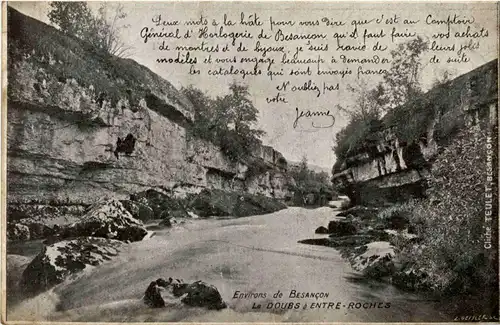 Deux mots à la hâte pour vous dire que c'est au Comptoir
Général d'Horlogerie de Besançon qu'il faut faire vos achats
de montres et de bijoux, je suis ravie de leurs jolis
modèles et vous engage beaucoup à demander de suite
les catalogues qui sont envoyés franco
N'oubliez pas
votre
Jeanne
Environs de BESANÇON
Le DOUBS à ENTRE-ROCHES
Cliché TEULET BESANÇON